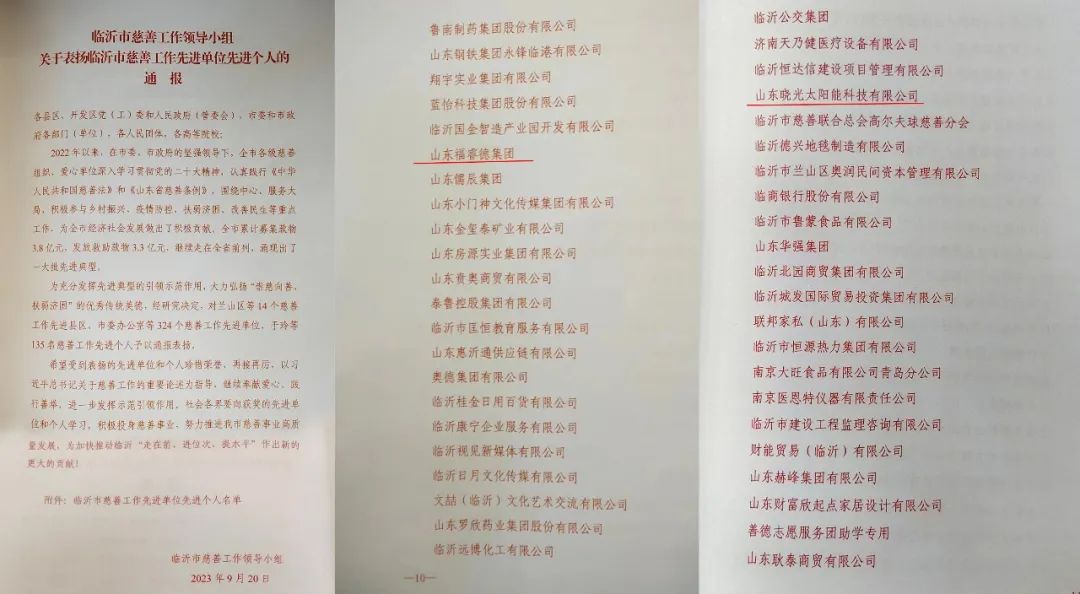 临沂市慈善工作领导小组
关于表扬临沂市慈善工作先进单位先进个人的
通 报
各县区、开发区党（工）委和人民政府（管委会），市委和市政
府各部门（单位），各人民团体，各高等院校：
2022年以来，在市委、市政府的坚强领导下，全市各级慈善
组织、爱心单位深入学习贯彻党的二十大精神，认真践行《中华
人民共和国慈善法》和《山东省慈善条例》，围绕中心、服务大
局，积极参与乡村振兴、疫情防控、扶弱济困、改善民生等重点
工作，为全市经济社会发展做出了积极贡献。全市累计募集款物
3.8亿元，发放救助款物3.3亿元，继续走在全省前列，涌现出了
一大批先进典型。
为充分发挥先进典型的引领示范作用，大力弘扬“崇慈向善、
扶弱济困”的优秀传统美德，经研究决定，对兰山区等14个慈善
工作先进县区、市委办公室等324个慈善工作先进单位、于玲等
135名慈善工作先进个人予以通报表扬。
希望受到表扬的先进单位和个人珍惜荣誉，再接再厉，以习
近平总书记关于慈善工作的重要论述为指导，继续奉献爱心，践
行善举，进一步发挥示范引领作用。社会各界要向获奖的先进单
位和个人学习，积极投身慈善事业，努力推进我市慈善事业高质
量发展，为加快推动临沂“走在前、进位次、提水平”作出新的
更大的贡献！
附件：临沂市慈善工作先进单位先进个人名单
临沂市慈善工作领导小组
2023年9月20日
鲁南制药集团股份有限公司
山东钢铁集团永锋临港有限公司
翔宇实业集团有限公司
蓝怡科技集团股份有限公司
临沂国金智造产业园开发有限公司
山东福睿德集团
山东儒辰集团
山东小门神文化传媒集团有限公司
山东金玺泰矿业有限公司
山东房源实业集团有限公司
山东贲奥商贸有限公司
泰鲁控股集团有限公司
临沂市匡恒教育服务有限公司
山东惠沂通供应链有限公司
奥德集团有限公司
临沂桂金日用百货有限公司
临沂康宁企业服务有限公司
临沂视见新媒体有限公司
临沂日月文化传媒有限公司
文喆（临沂）文化艺术交流有限公司
山东罗欣药业集团股份有限公司
临沂远博化工有限公司
—10—
临沂公交集团
济南天乃健医疗设备有限公司
临沂恒达信建设项目管理有限公司
山东晓光太阳能科技有限公司
临沂市慈善联合总会高尔夫球慈善分会
临沂德兴地毯制造有限公司
临沂市兰山区奥润民间资本管理有限公司
临商银行股份有限公司
临沂市鲁蒙食品有限公司
山东华强集团
临沂北园商贸集团有限公司
临沂城发国际贸易投资集团有限公司
联邦家私（山东）有限公司
临沂市恒源热力集团有限公司
南京大旺食品有限公司青岛分公司
南京医恩特仪器有限责任公司
临沂市建设工程监理咨询有限公司
财能贸易（临沂）有限公司
山东赫峰集团有限公司
山东财富欣起点家居设计有限公司
善德志愿服务团助学专用
山东耿泰商贸有限公司